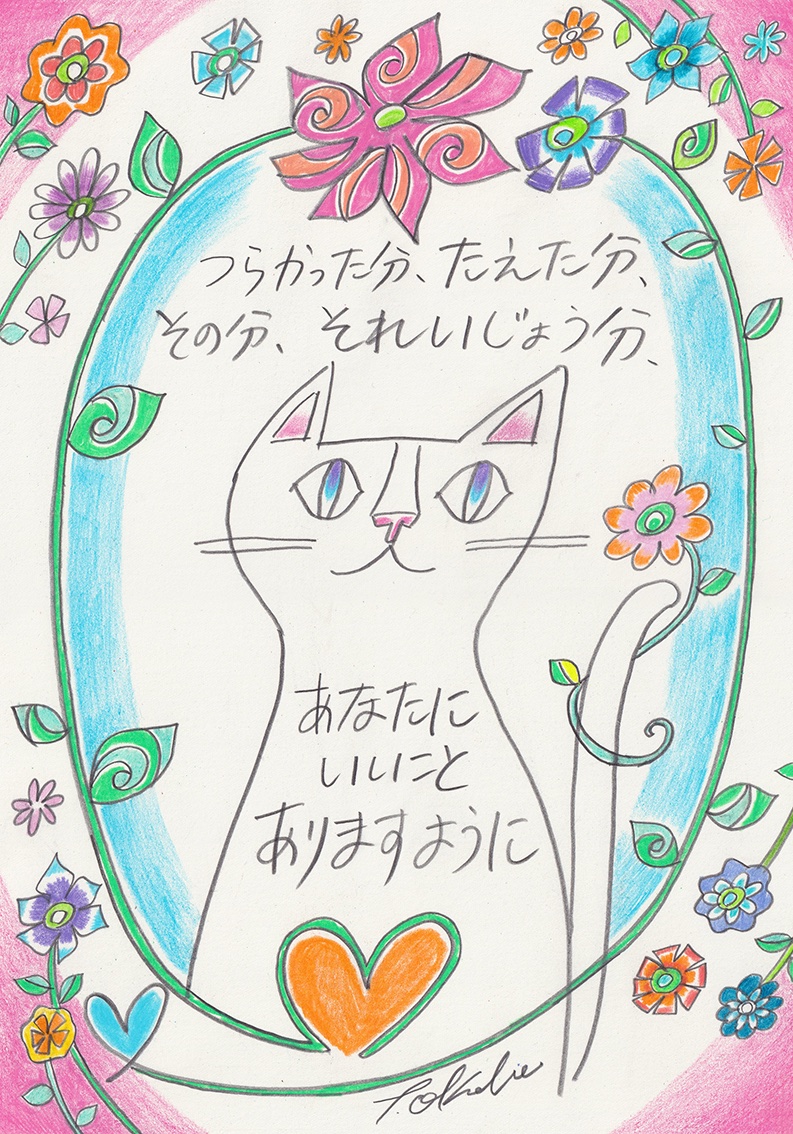 つらかった分、たえた分、
その分、それいじょう分、
あなたに
いいにと
ありますように